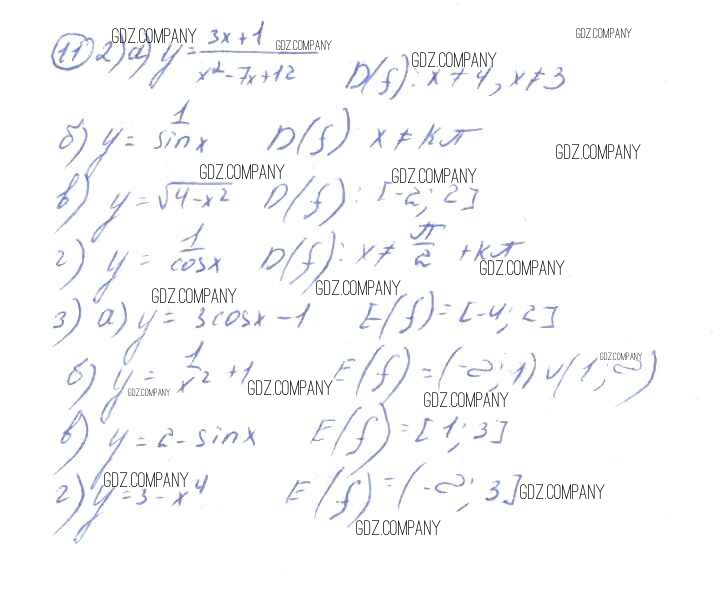 GDZ.COMPANY GDZ.COMPANY
11 2) а) y = (3x+1)/(x²-7x+12) GDZ.COMPANY D(f): x≠4, x≠3 GDZ.COMPANY
б) y = 1/sinx D(f) x≠kπ GDZ.COMPANY
GDZ.COMPANY GDZ.COMPANY
в) y = √4-x² D(f): [-2; 2]
г) y = 1/cosx D(f): x≠ π/2 + kπ GDZ.COMPANY
GDZ.COMPANY GDZ.COMPANY
3) а) y = 3cosx-1 E(f)=[-4; 2]
б) y = 1/x² +1 E(f)=(-∞; 1)∪(1; ∞) GDZ.COMPANY
GDZ.COMPANY GDZ.COMPANY GDZ.COMPANY
в) y = 2-sinx E(f)=[1; 3]
GDZ.COMPANY
г) y = 3-x⁴ E(f)=(-∞; 3] GDZ.COMPANY
GDZ.COMPANY